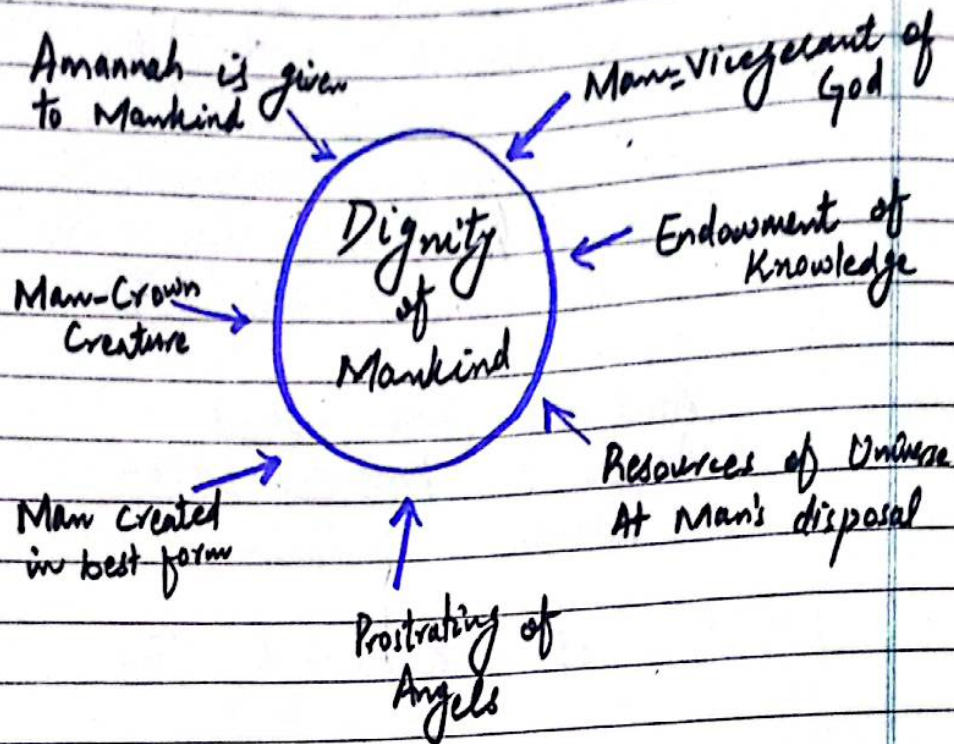 Amannah is given
to Mankind
Man-Vicegerant of
God
Dignity
of
Mankind
Endowment of
Knowledge
Man-Crown
Creature
Resources of Universe
At Man's disposal
Man created
in best form
Prostrating of
Angels